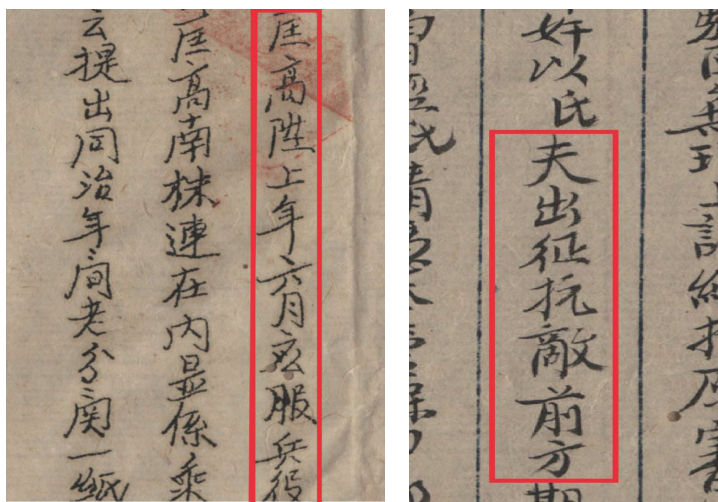 匡高陞上年六月应服兵役
匡高南株連在内显係乘
云提出同治年间老分関一紙
上訴維持原審
奸以氏夫出征抗敵前方期